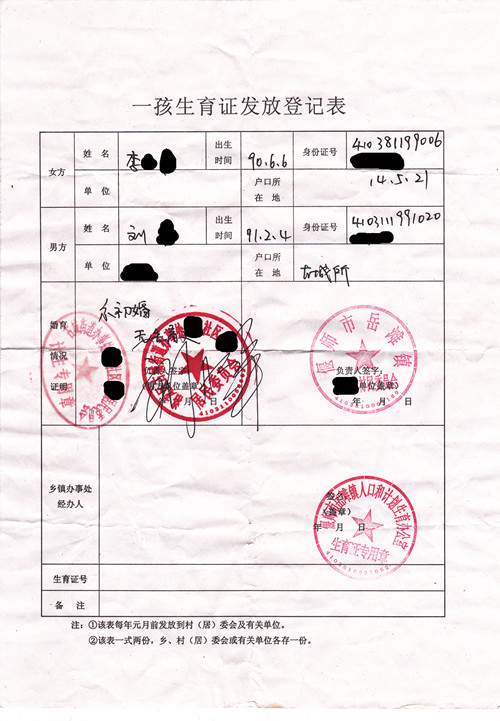 一孩生育证发放登记表
女方 姓名 李 出生时间 90.6.6 身份证号 410381199006
单位 户口所在地 14.5.21
男方 姓名 刘 出生时间 91.2.4 身份证号
单位 户口所在地
婚育情况证明
初婚
负责人签字：
（单位盖章）
年 月 日
社区专用章
居民委员会
负责人签字：
（单位盖章）
年 月 日
偃师市岳滩镇
乡镇办事处经办人
签名
（盖章）
年 月 日
偃师市岳滩镇人口和计划生育办公室
生育证专用章
生育证号
备注
注：①该表每年元月前发放到村（居）委会及有关单位。
②该表一式两份，乡、村（居）委会或有关单位各存一份。